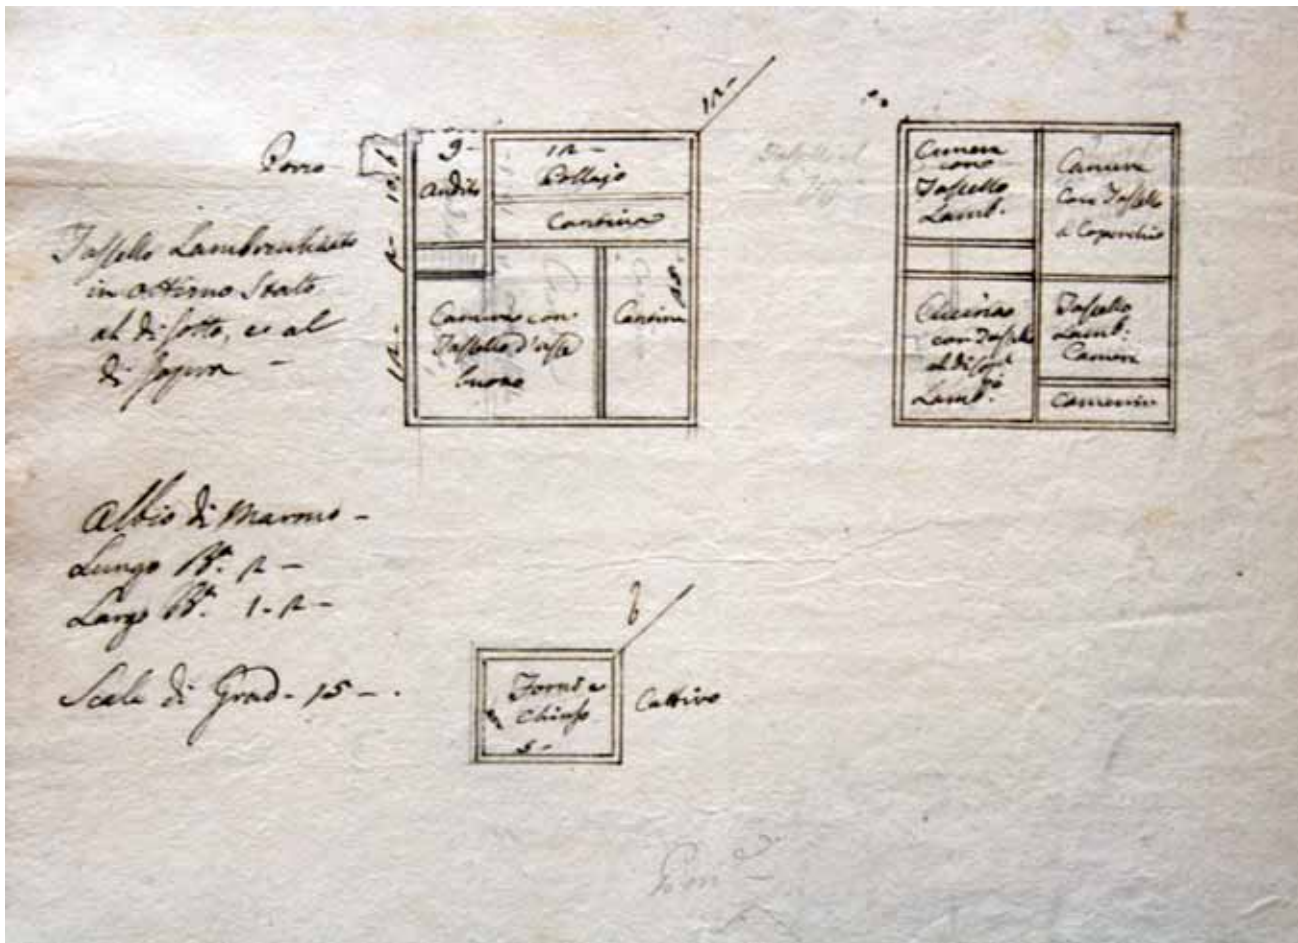 Pozzo
Tassello Lambrechiato
in ottimo Stato
al di sotto, e al
di sopra -
9 -
Andito
12 -
Pollajo
Cantina
Camera con
Tassello d'asse
buono
Cantina
12 -
Camera
con
Tassello
Lamb.
Camera
Con Tassello
a Coperchio
Cucina
con Tassello
al di sop.
Lamb.
Tassello
Lamb:
Camera
Camerino
Albio di Marmo -
Lungo B.a 2 -
Largo B.a 1 - 2 -
Scala di Grad - 15 - .
6
Forno e
chiuso
5 -
Cattivo